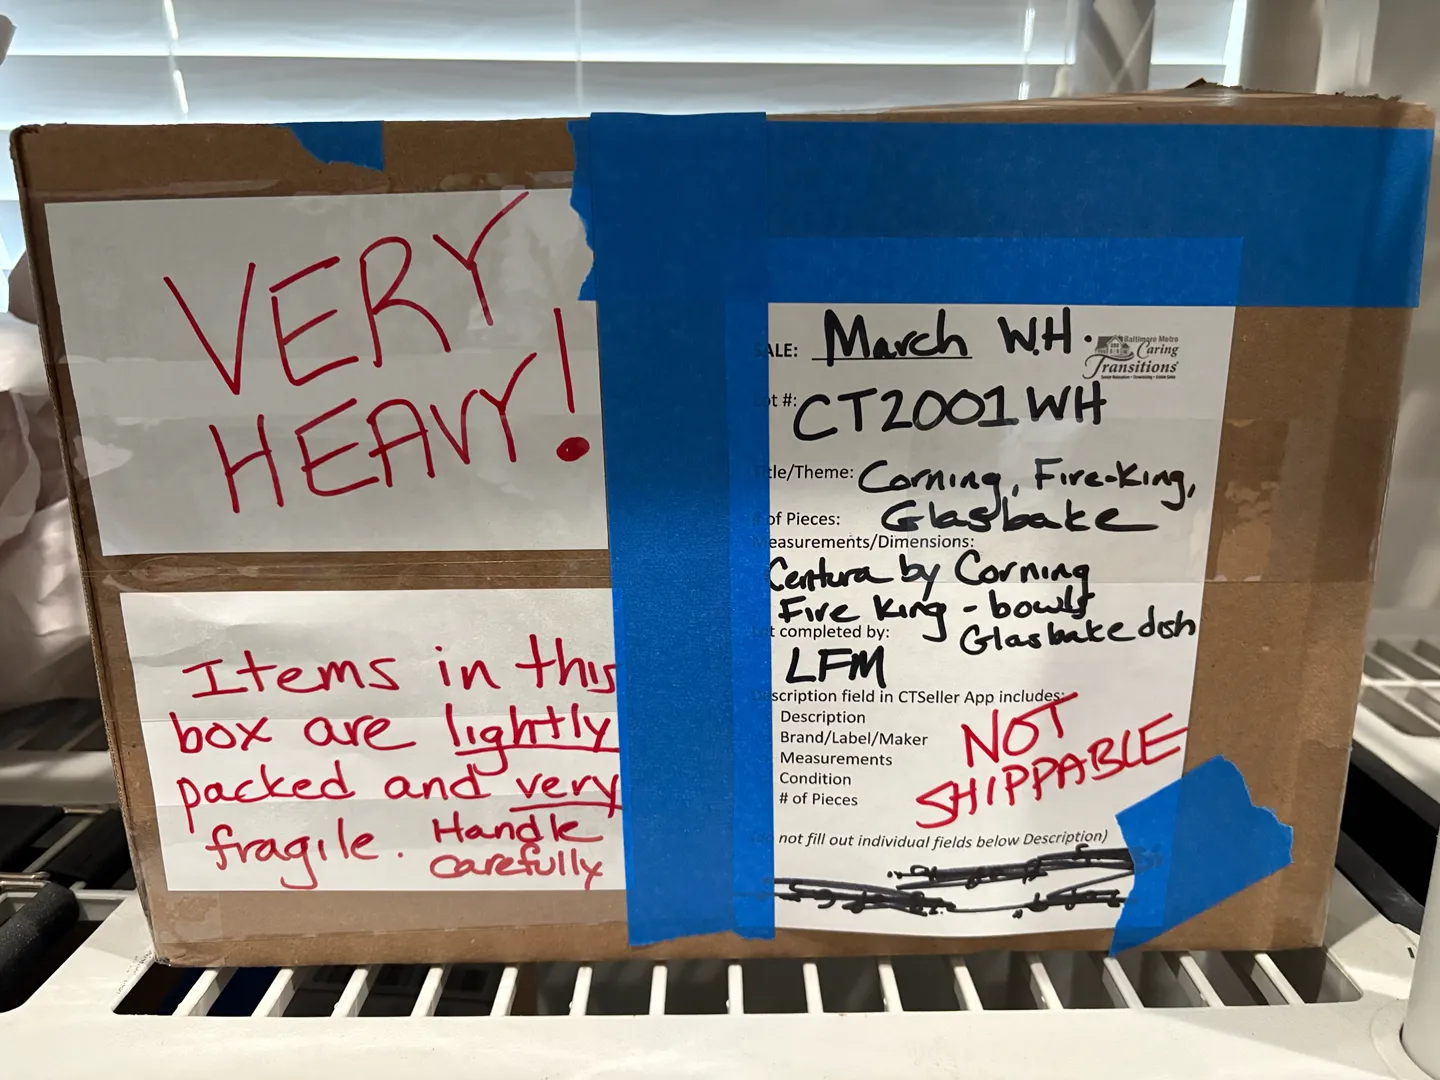 VERY
HEAVY!
Items in this
box are lightly
packed and very
fragile. Handle
Carefully
ALE: March W.H.
Baltimore Metro
Caring
Transitions
ot #: CT2001WH
tle/Theme: Corning, Fire-King,
of Pieces: Glasbake
easurements/Dimensions:
Centura by Corning
Fire King - bowls
t completed by: Glasbake dish
LFM
scription field in CTSeller App includes:
Description
Brand/Label/Maker
Measurements
Condition
# of Pieces
NOT
SHIPPABLE
o not fill out individual fields below Description)